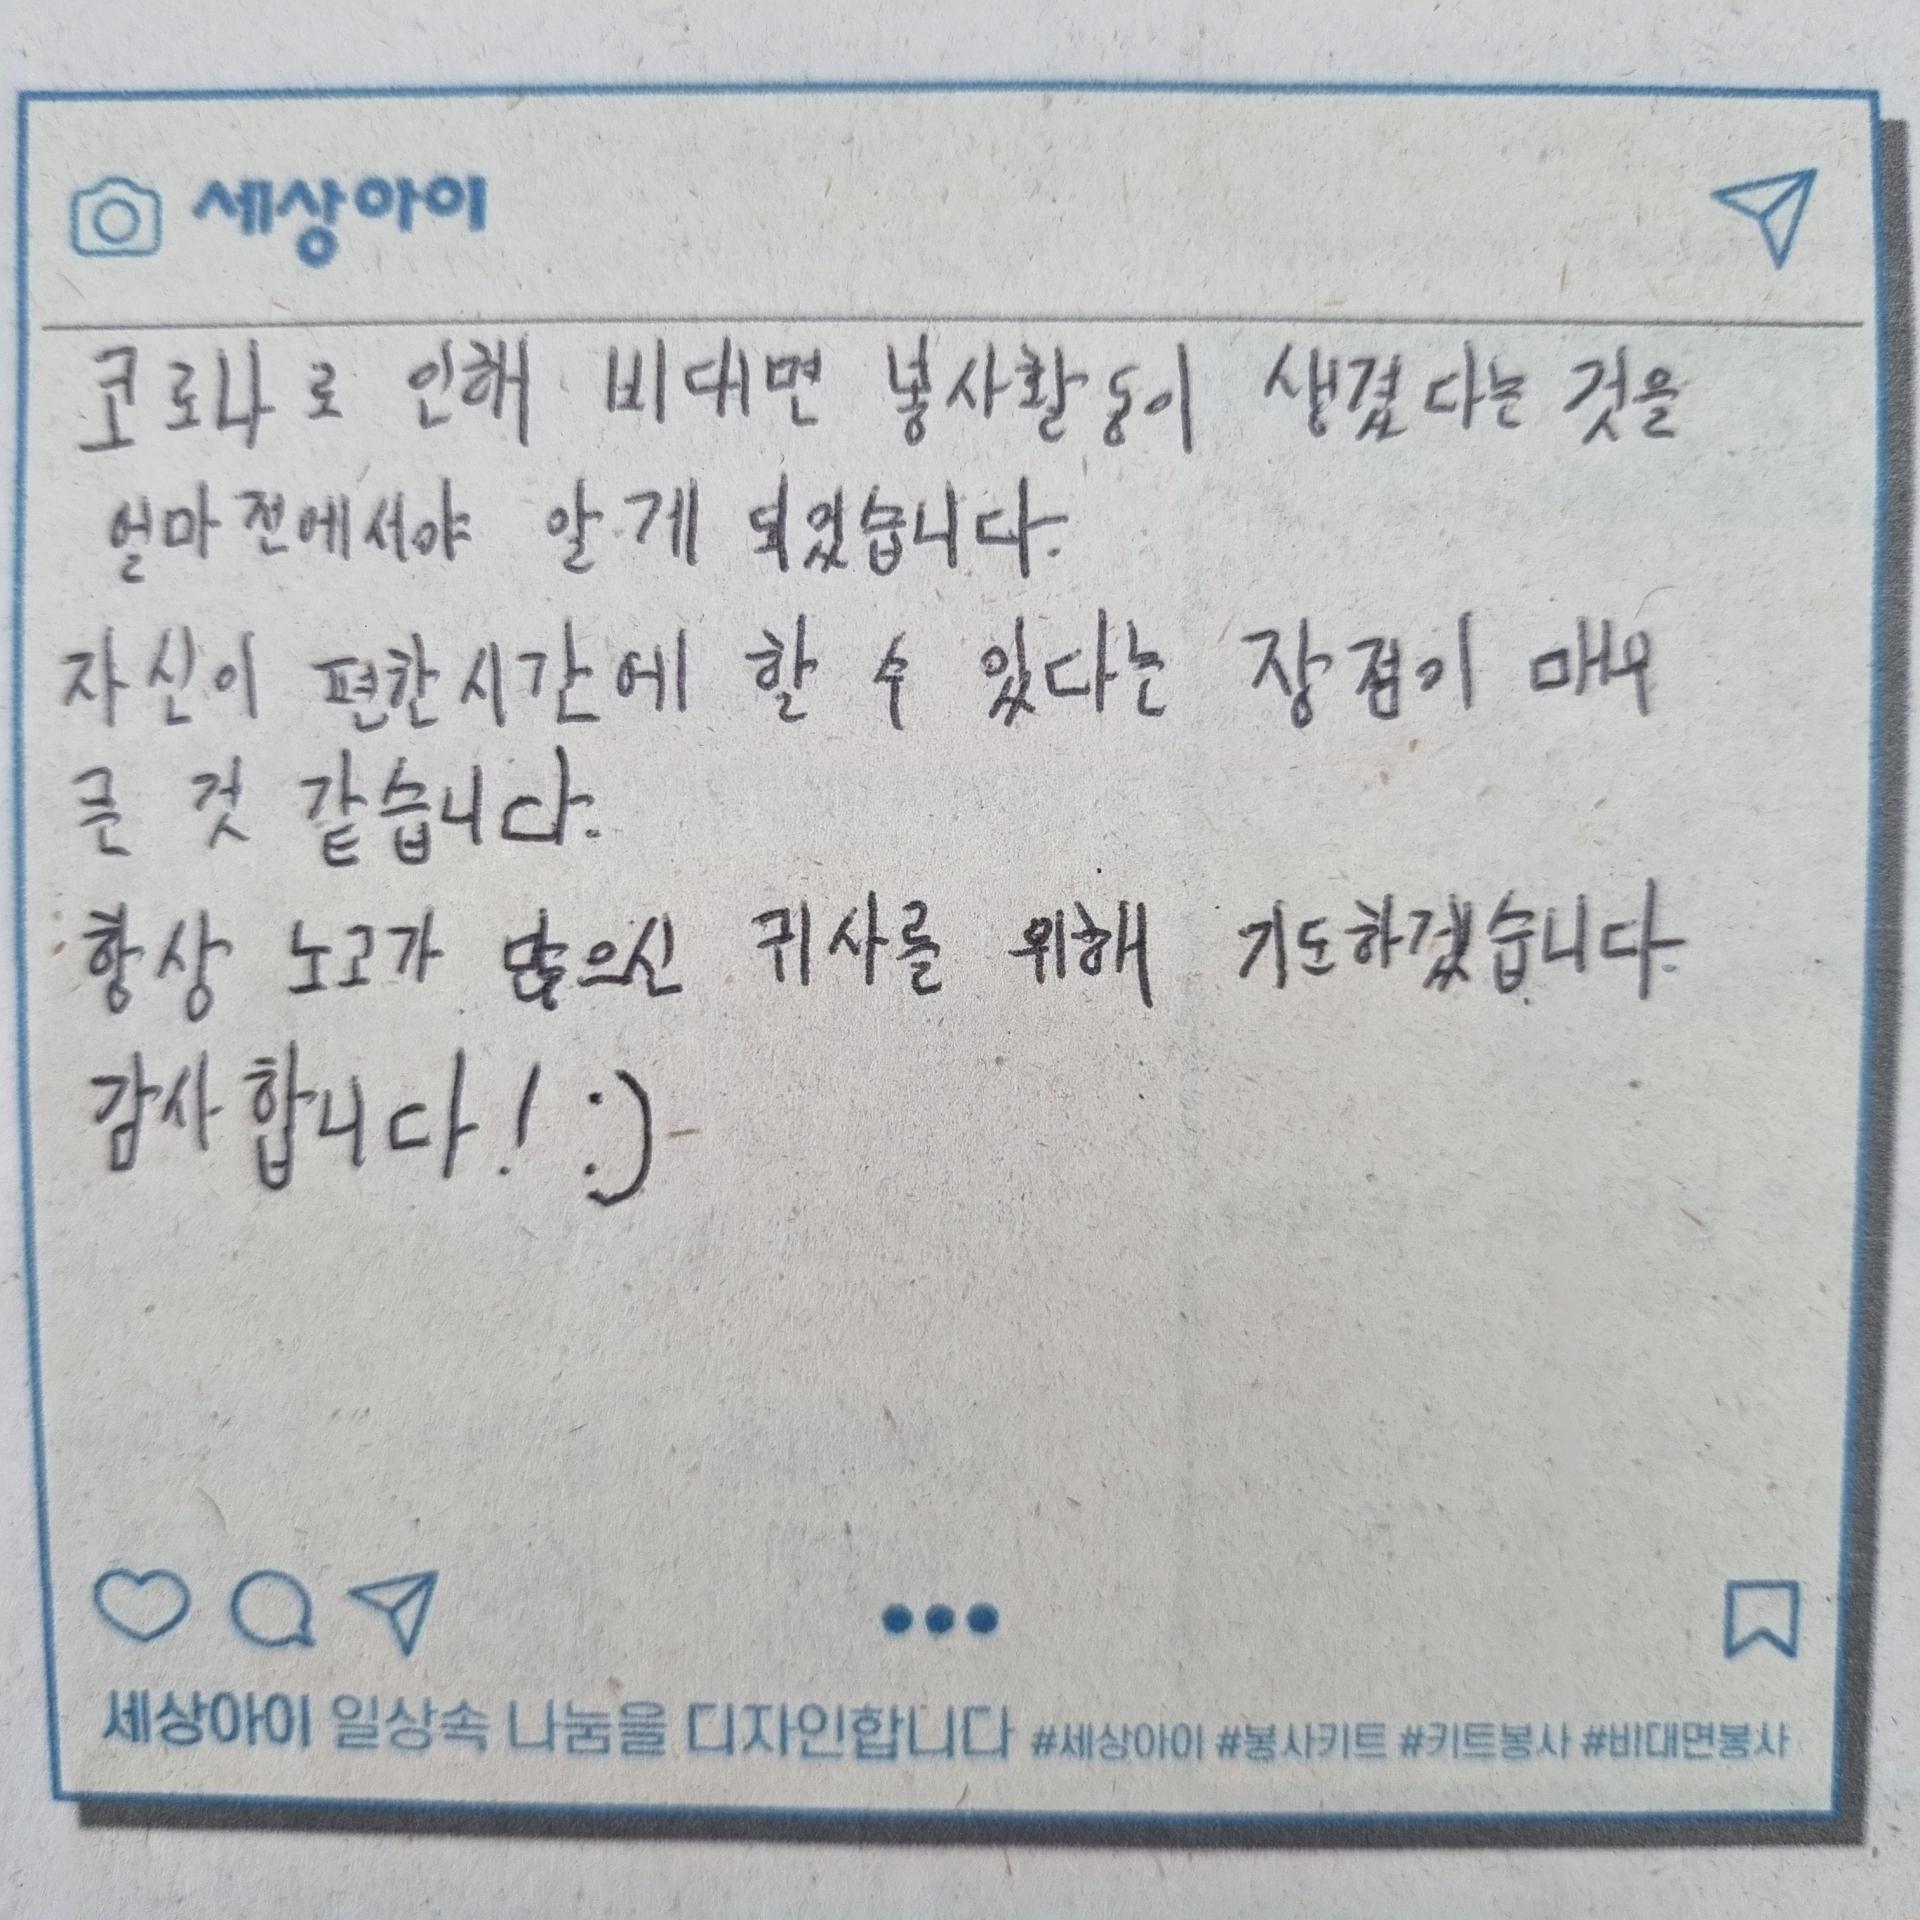 세상아이
코로나로 인해 비대면 봉사활동이 생겼다는 것을
얼마전에서야 알게 되었습니다.
자신이 편한시간에 할 수 있다는 장점이 매우
큰 것 같습니다.
항상 노고가 많으신 귀사를 위해 기도하겠습니다.
감사합니다! :)
세상아이 일상속 나눔을 디자인합니다 #세상아이 #봉사키트 #키트봉사 #비대면봉사